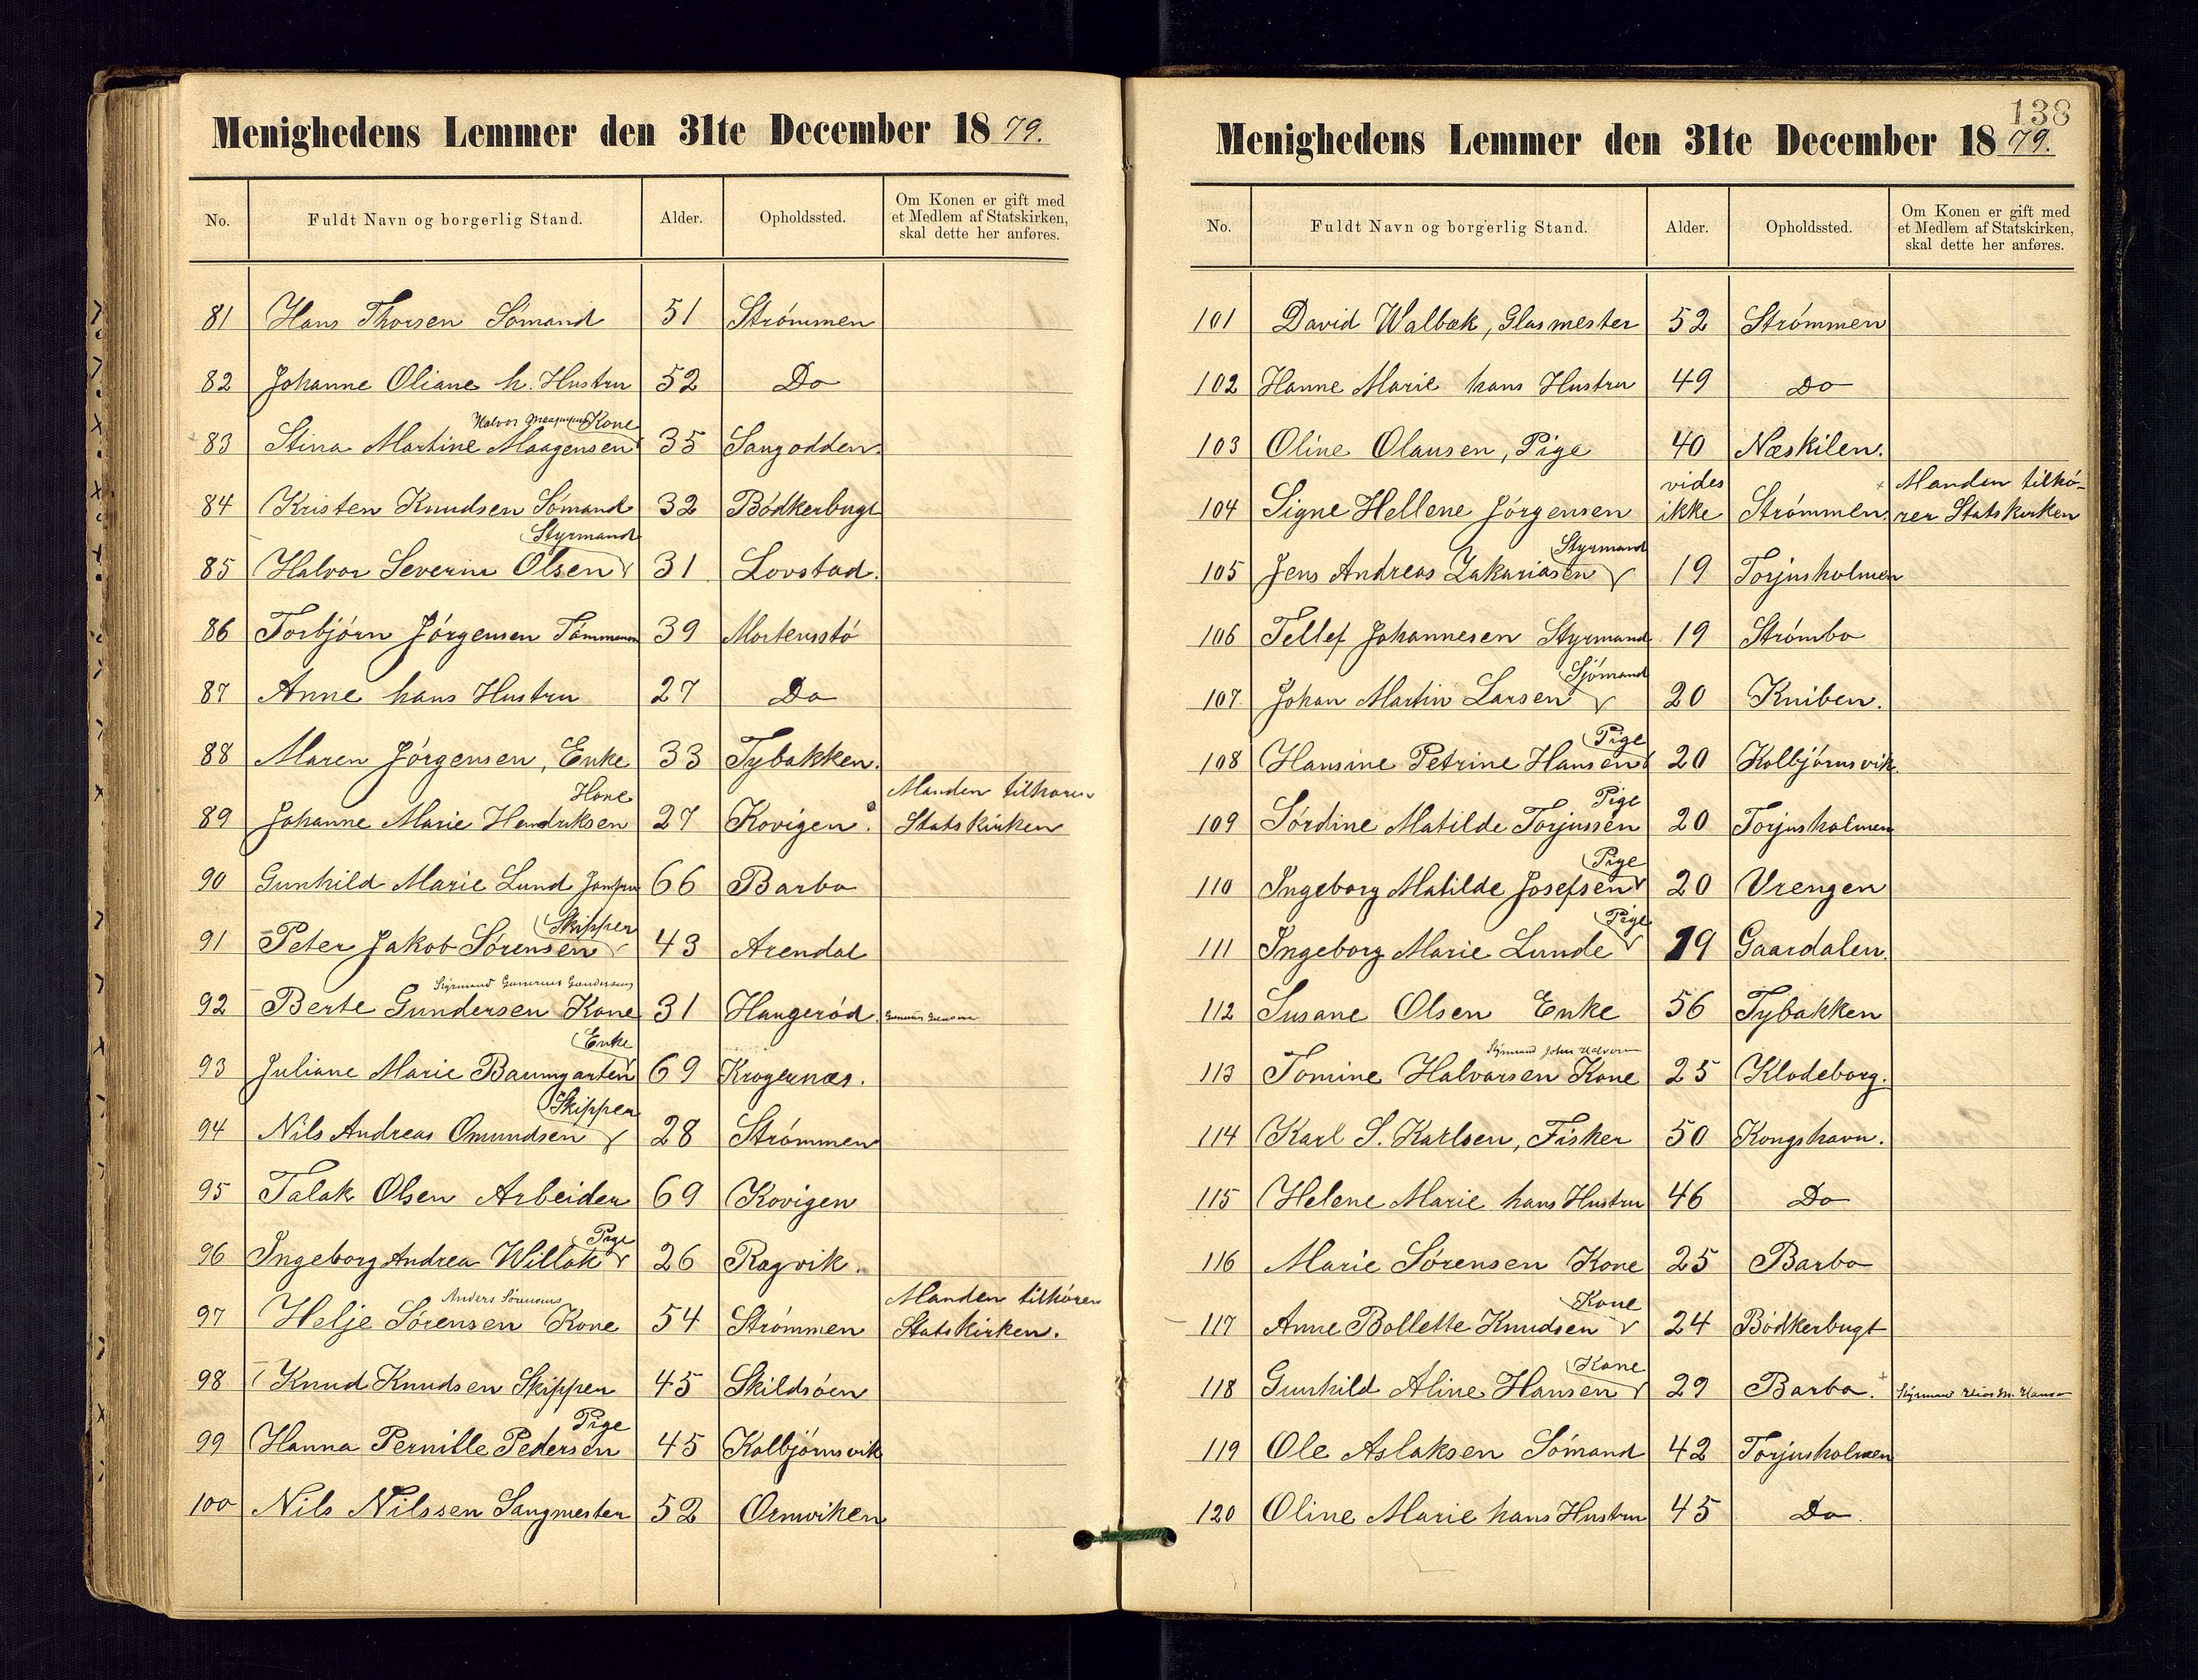 Menighedens Lemmer den 31te December 1879.
No. Fuldt Navn og borgerlig Stand. Alder. Opholdssted. Om Konen er gift med
et Medlem af Statskirken,
skal dette her anføres.
81 Hans Thorsen Sømand 51 Strømmen
82 Johanne Oliane h. Hustru 52 Do
Halvor Maagensens Kone
83 Stina Martine Maagensen 35 Saugodden.
84 Kristen Knudsen Sømand 32 Bødkerbugt
Styrmand
85 Halvor Severin Olsen 31 Lovstad.
86 Torbjørn Jørgensen Tømmermn 39 Mortensstø
87 Anne hans Hustru 27 Do
88 Maren Jørgensen, Enke 33 Tybakken.
Kone Manden tilhører
89 Johanne Marie Hendriksen 27 Kovigen. Statskirken
90 Gunhild Marie Lund Jomfru 66 Barbo
Skipper
91 Peter Jakob Sørensen 43 Arendal
Styrmand Gunerius Gundersens
92 Berte Gundersen Kone 31 Haugerød.
Enke
93 Juliane Marie Baumgarten 69 Krogernæs.
Skipper
94 Nils Andreas Omundsen 28 Strømmen
95 Talak Olsen Arbeider 69 Kovigen
Pige
96 Ingeborg Andrea Willok 26 Ragvik.
Anders Sørensens Manden tilhører
97 Helje Sørensen Kone 54 Strømmen Statskirken.
98 Knud Knudsen Skipper 45 Skildsøen
Pige
99 Hanna Pernille Pedersen 45 Kolbjørnsvik
100 Nils Nilssen Saugmester 52 Ormviken
138
Menighedens Lemmer den 31te December 1879.
No. Fuldt Navn og borgerlig Stand. Alder. Opholdssted. Om Konen er gift med
et Medlem af Statskirken,
skal dette her anføres.
101 David Walbæk, Glasmester 52 Strømmen
102 Hanne Marie hans Hustru 49 Do
103 Oline Olausen, Pige 40 Næskilen.
vides Manden tilhø-
104 Signe Hellene Jørgensen ikke Strømmen. rer Statskirken
Styrmand
105 Jens Andreas Zakariasen 19 Torjusholmen
106 Tellef Johannesen Styrmand 19 Strømbo
Sjømand
107 Johan Martin Larsen 20 Kniben.
Pige
108 Hansine Petrine Hansen 20 Kolbjørnsvik.
Pige
109 Sørdine Matilde Torjussen 20 Torjusholmen
Pige
110 Ingeborg Matilde Josefsen 20 Vrengen
Pige
111 Ingeborg Marie Lunde 19 Gaardalen.
112 Susane Olsen Enke 56 Tybakken
Styrmand John Halvorsen
113 Tomine Halvorsen Kone 25 Klodeborg.
114 Karl S. Karlsen, Fisker 50 Kongshavn.
115 Helene Marie hans Hustru 46 Do
116 Marie Sørensen Kone 25 Barbo
Kone
117 Anne Bollette Knudsen 24 Bødkerbugt
Kone
118 Gunhild Aline Hansen 29 Barbo. Styrmand M. Hansen
119 Ole Aslaksen Sømand 42 Torjusholmen
120 Oline Marie hans Hustru 45 Do.